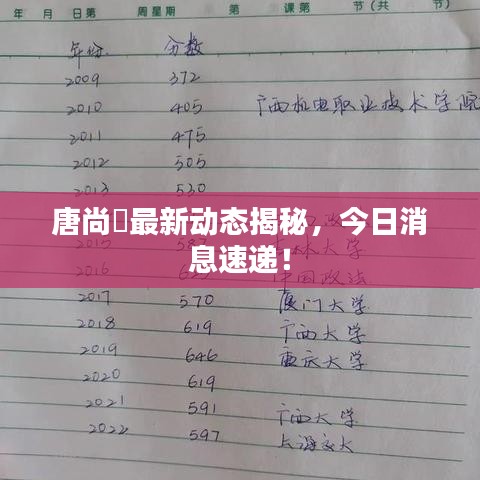 年 月 日第 周星期 课第 节(共 节)
年份 分数
2009 372
2010 405 广西机电职业技术学院
2011 475
2012 505
2013 530
唐尚最新动态揭秘，今日消
息速递！
中国政法
2017 570 厦门大学
2018 619 广西大学
2019 646 重庆大学
2020 619
2021 591 广西大学
2022 597 上海交大